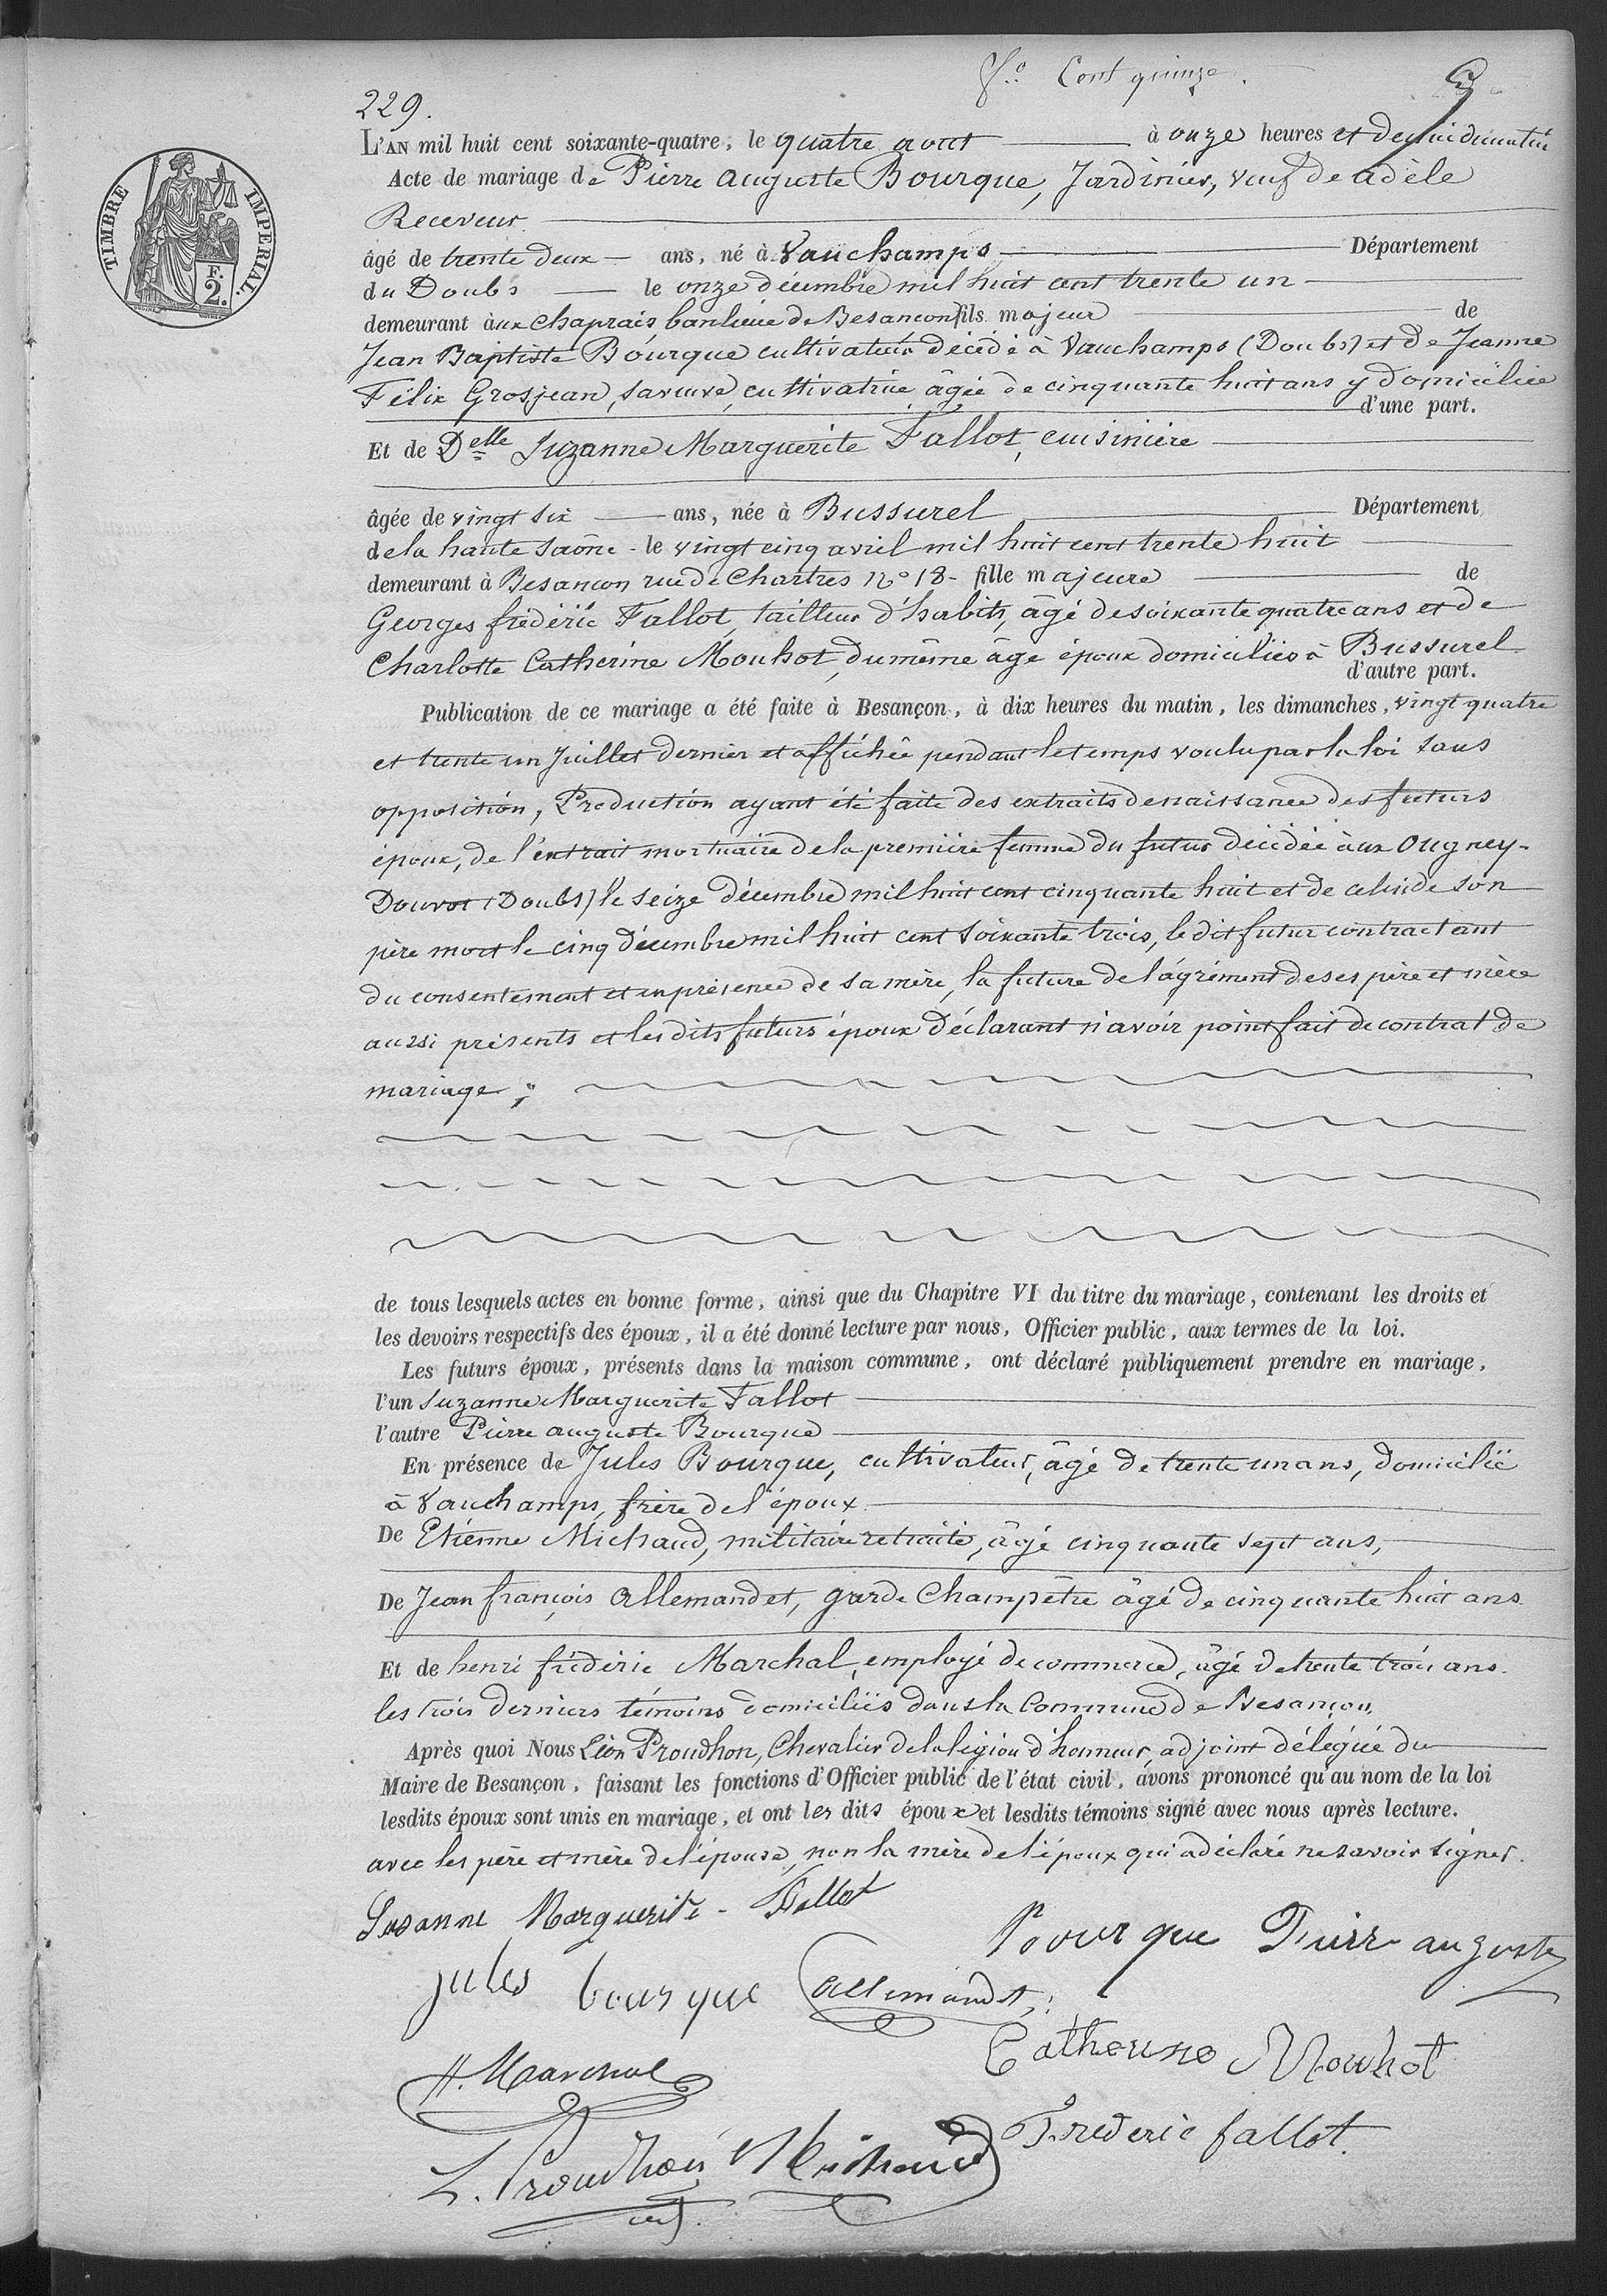 f.º Cent quinze.
229.
TIMBRE IMPERIAL.
F.
2.
L'AN mil huit cent soixante-quatre, le quatre aout à onze heures et demie du matin
Acte de mariage de Pierre Auguste Bourque, Jardinier, veuf de adèle
Receveur
âgé de trente deux ans, né à Vauchamps Département
du Doubs le onze décembre mil huit cent trente un
demeurant aux Chaprais banlieue de Besancon fils majeur de
Jean Baptiste Bourque cultivateur décédé à Vauchamps (Doubs) et de Jeanne
Félix Grosjean, sa veuve, cultivatrice âgée de cinquante huit ans y domiciliée
d'une part.
Et de Delle Suzanne Marguerite Fallot, cuisinière
âgée de vingt six ans, née à Bussurel Département
de la haute Saône le vingt cinq avril mil huit cent trente huit
demeurant à Besancon rue de Chartres No 18 - fille majeure de
Georges frédéric Fallot, tailleur d'habits, âgé de soixante quatre ans et de
Charlotte Catherine Mouhot, du même âge époux domiciliés à Bussurel
d'autre part.
Publication de ce mariage a été faite à Besançon, à dix heures du matin, les dimanches, vingt quatre
et trente un Juillet dernier et affichée pendant le temps voulu par la loi sans
opposition, Production ayant été faite des extraits de naissance des futurs
époux, de l'extrait mortuaire de la première femme du futur décédée aux Ougney-
Douvot (Doubs) le seize décembre mil huit cent cinquante huit et de celui de son
père mort le cinq décembre mil huit cent soixante trois, le dit futur contractant
du consentement et en présence de sa mère, la future de l'agrément de ses père et mère
aussi présents et les dits futurs époux déclarant n'avoir point fait de contrat de
mariage ;
de tous lesquels actes en bonne forme, ainsi que du Chapitre VI du titre du mariage, contenant les droits et
les devoirs respectifs des époux, il a été donné lecture par nous, Officier public, aux termes de la loi.
Les futurs époux, présents dans la maison commune, ont déclaré publiquement prendre en mariage,
l'un Suzanne Marguerite Fallot
l'autre Pierre auguste Bourque
En présence de Jules Bourque, cultivateur, âgé de trente un ans, domicilié
à Vauchamps, frère de l'époux
De Etienne Michaud, militaire retraité, âgé cinquante sept ans,
De Jean françois Allemandet, garde Champêtre âgé de cinquante huit ans
Et de henri frédéric Marchal, employé de commerce, âgé de trente trois ans.
les trois derniers témoins domiciliés dans la Commune de Besancon,
Après quoi Nous Léon Proudhon, Chevalier de la légion d'honneur, adjoint délégué du
Maire de Besançon, faisant les fonctions d'Officier public de l'état civil, avons prononcé qu'au nom de la loi
lesdits époux sont unis en mariage, et ont les dits époux et lesdits témoins signé avec nous après lecture.
avec les père et mère de l'épouse, non la mère de l'époux qui a déclaré ne savoir signer.
Susanne Marguerite - Fallot
Bourque Pierre auguste
jules bourque Allemandet
Catherine Mouhot
H. Marchal
Frederic fallot.
L. Proudhon Michaud
adj.